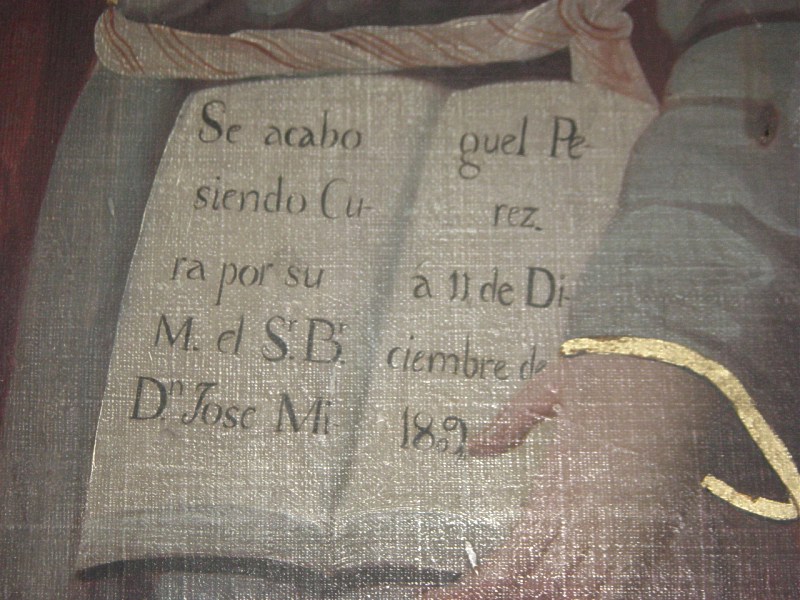 Se acabo
siendo Cu-
ra por su
M. el Sr. Br.
Dn. Jose Mi
guel Pe-
rez.
á 11 de Di-
ciembre de